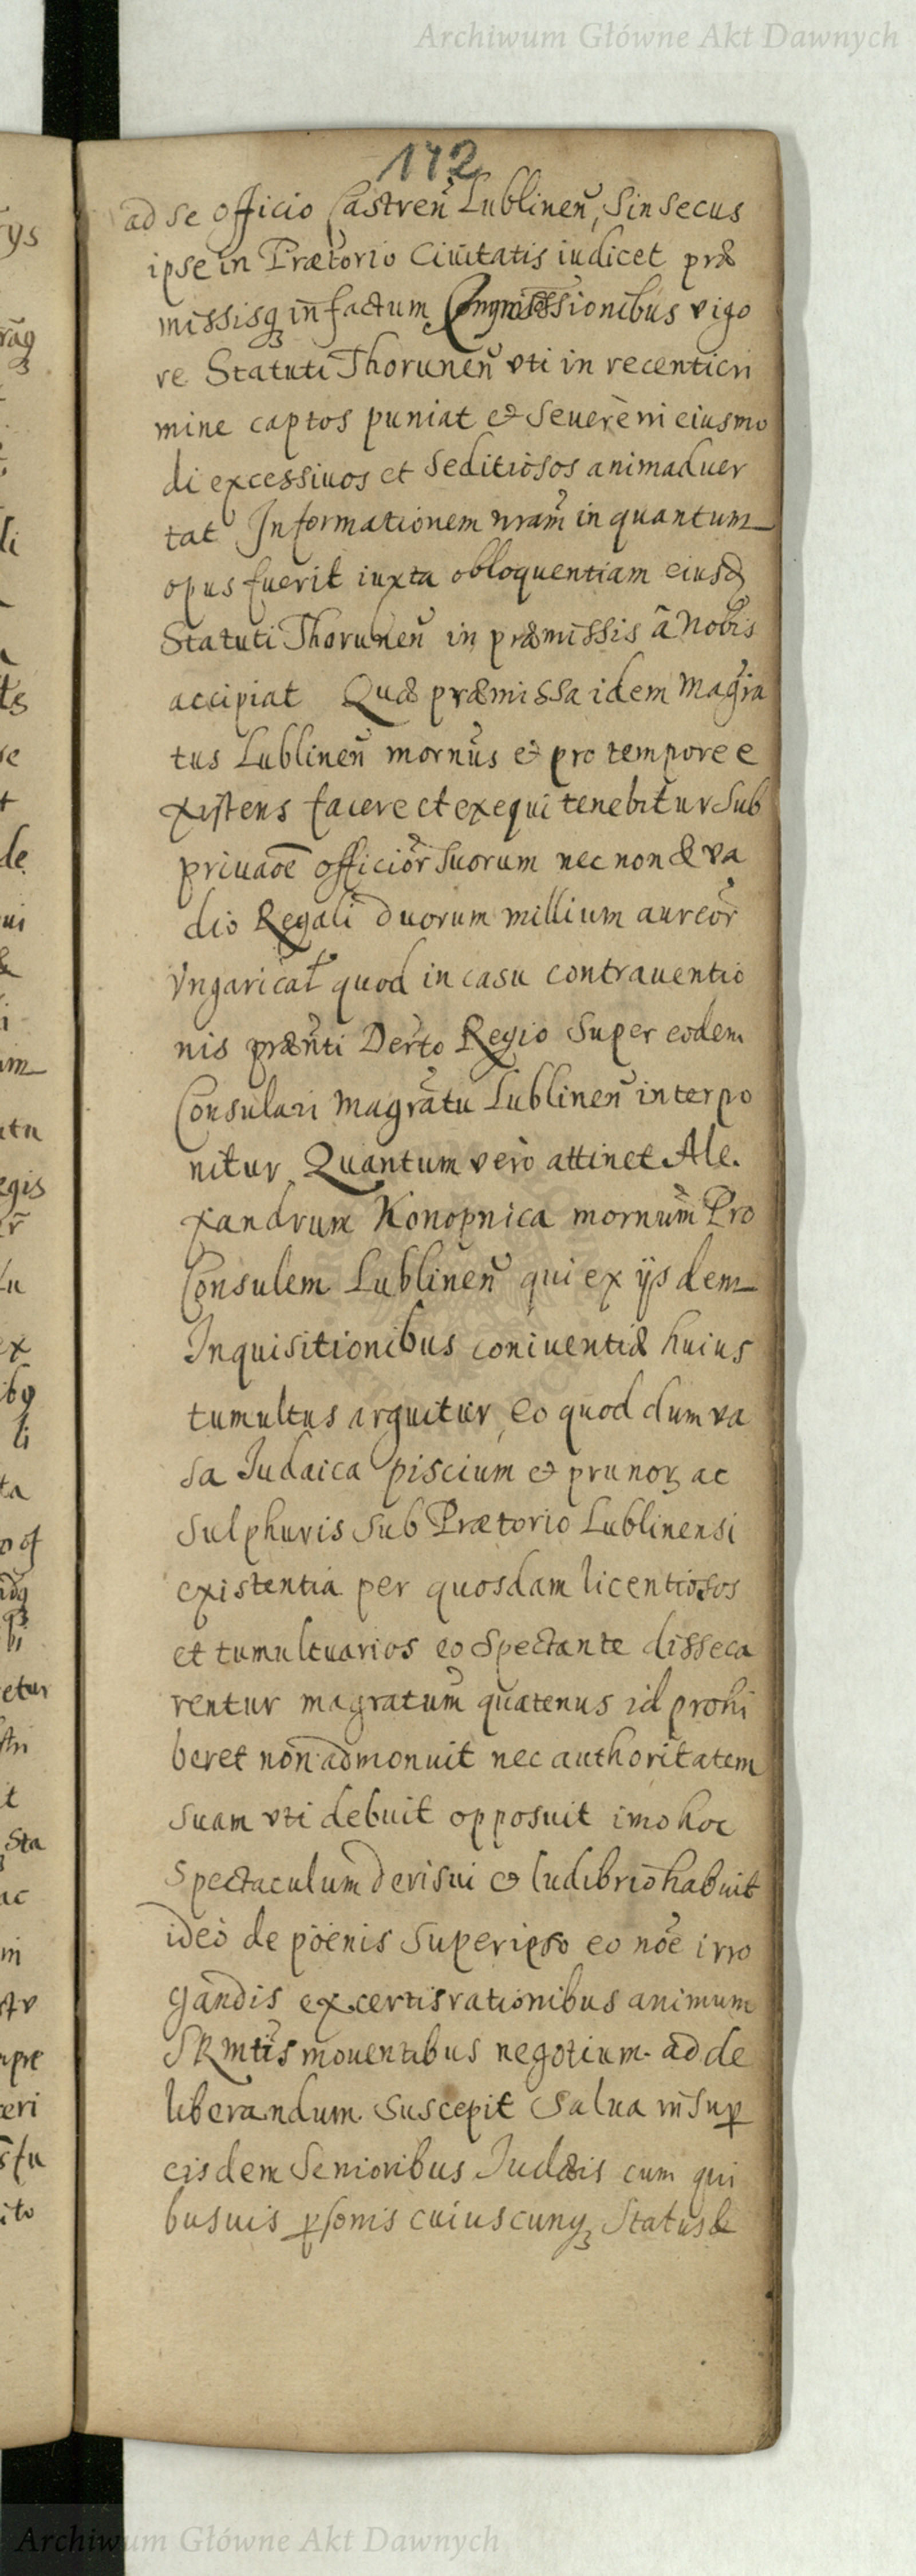 Archiwum Główne Akt Dawnych
172
ad se officio Castren̄ Lublinen̄, Sin secus
ipse in Prætorio Ciuitatis iudicet præ
missisq₃ in factum sionibus vigo
re Statuti Thorunen̄ vti in recenti cri
mine captos puniat et seuerè in eiusmo
di excessiuos et seditiosos animaduer
tat Informationem nram̄ in quantum
opus fuerit iuxta obloquentiam eiusd
Statuti Thorunen̄ in præmissis â Nobis
accipiat Quæ præmissa idem Magra
tus Lublinen̄ mornus et pro tempore e
xistens facere et exequi tenebitur sub
priuaōe officior̄ suorum nec non & va
dio Regali duorum millium aureor̄
Vngarical quod in casu contrauentio
nis præn̄ti Der̄to Regio super eodem
Consulari magrātu Lublinen̄ interpo
nitur Quantum verò attinet Ale.
xandrum Konopnica mornum̄ Pro
Consulem Lublinen̄ qui ex ijsdem
Inquisitionibus coniuentiæ huius
tumultus arguitur, eo quod dum va
sa Judaica piscium et prunoꝝ ac
sulphuris sub Prætorio Lublinensi
existentia per quosdam licentiosos
et tumultuarios eo spectante disseca
rentur magratum̄ quatenus id prohi
beret non admonuit nec authoritatem
suam vti debuit opposuit imo hoc
spectaculum derisui et ludibrio habuit
ideò de pöenis super ipso eo nōe irro
gandis ex certis rationibus animum
SRMtis mouentibus negotium ad de
liberandum suscepit salua insuꝑ
eisdem Senioribus Judæis cum qui
busuis ꝑsonis cuiuscunq₃ Status &
Archiwum Główne Akt Dawnych